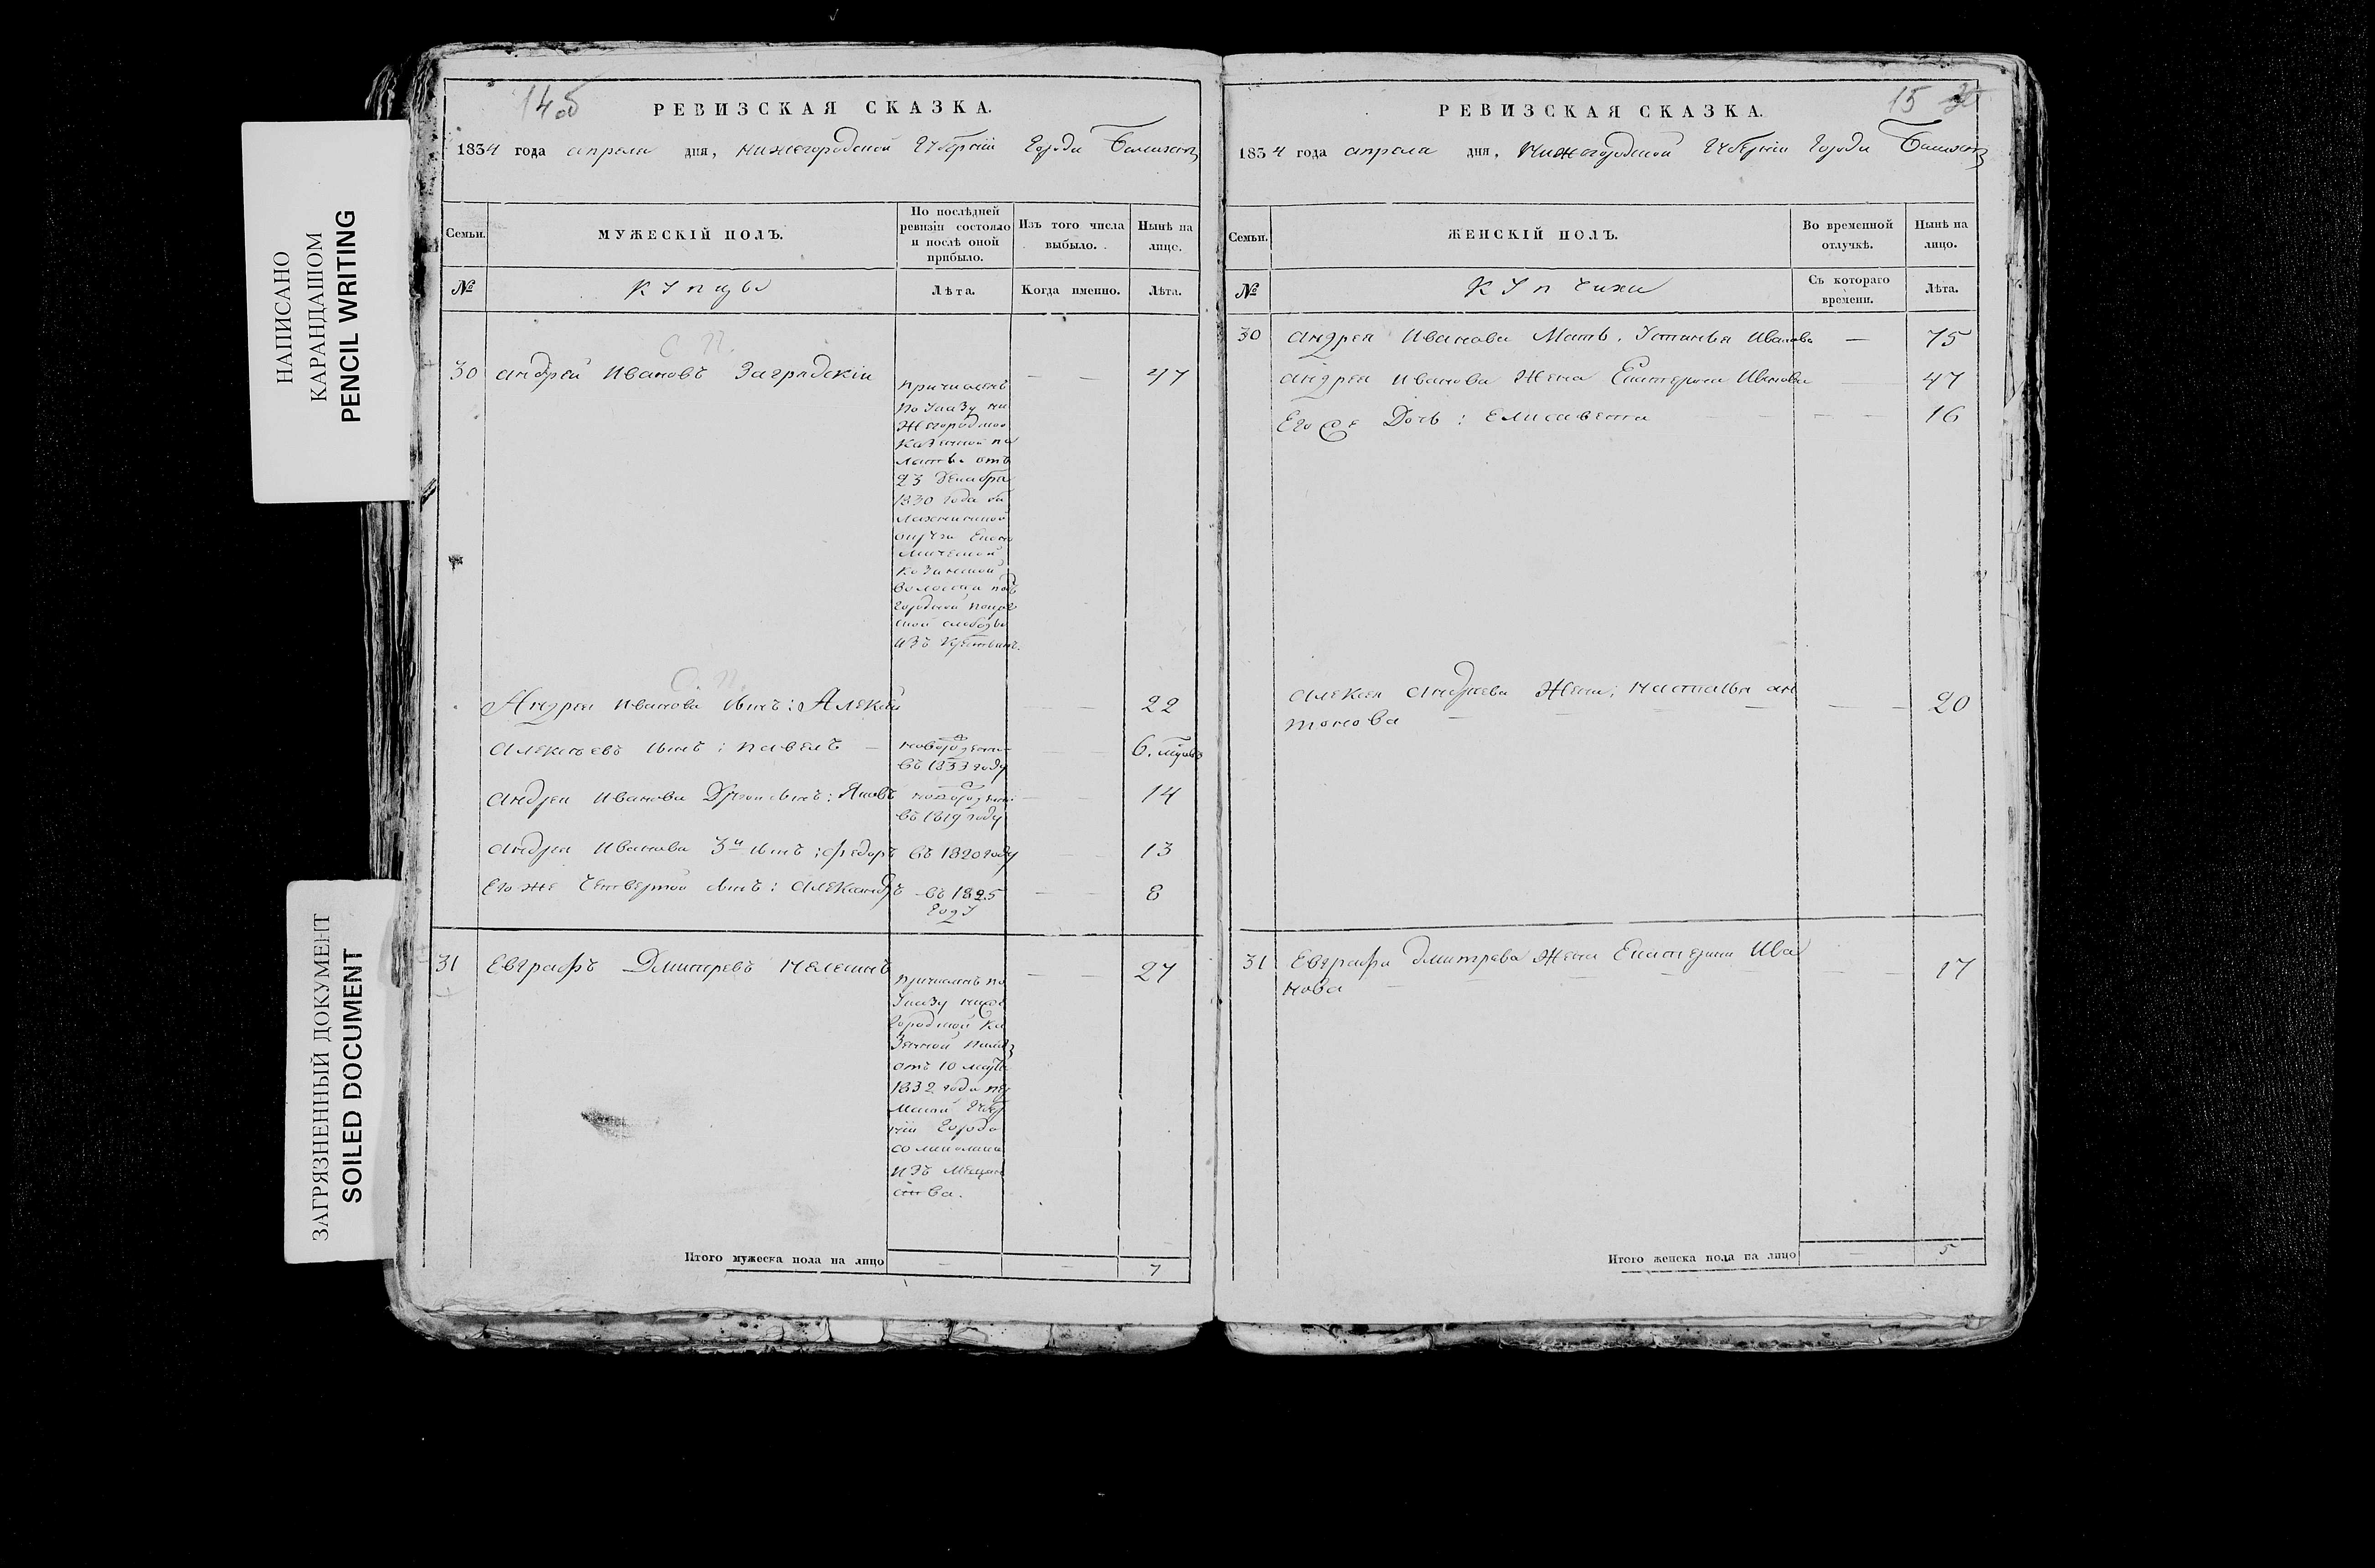 НАПИСАНО
КАРАНДАШОМ
PENCIL WRITING
ЗАГРЯЗНЕННЫЙ ДОКУМЕНТ
SOILED DOCUMENT
14об
РЕВИЗСКАЯ СКАЗКА.
1834 года апреля дня, Нижегородской Губернїи Города Балахны
Семьи.
МУЖЕСКІЙ ПОЛЪ.
По послѣдней ревизіи состояло и послѣ оной прибыло.
Изъ того числа выбыло.
Нынѣ на лицо.
№
Купцы
Лѣта.
Когда именно.
Лѣта.
С. П.
30 Андрей Ивановъ Заградскіи — — 47
причисленъ
по Указу Ни
жегородской
Казенной па
латы отъ
23 Декабря
1830 года
Казанской
волости под
городной
слободы
изъ
С. П.
Андрея Иванова сынъ: Алексей — — 22
Алексѣевъ сынъ: Павелъ — новорожденъ 6. мѣсяцъ
въ 1833 году
Андрея Иванова Другои сынъ: Яковъ новорожденъ — — 14
въ 1819 году
Андрея Иванова 3й сынъ: Федоръ въ 1820 году — — 13
Его же Четвертой сынъ: Александръ въ 1825 — — 8
году
31 Евграфъ Дмитревъ — — 27
причисленъ по
Указу Ниже
городской Ка
зенной палаты
отъ 10 марта
1832 года
Губер
нїи Города
изъ мещан
ства.
Итого мужеска пола на лицо — — 7
15
РЕВИЗСКАЯ СКАЗКА.
1834 года апреля дня, Нижегородской Губернїи Города Балахны
Семьи.
ЖЕНСКІЙ ПОЛЪ.
Во временной отлучкѣ.
Нынѣ на лицо.
№
Купчихи
Съ котораго времени.
Лѣта.
30 Андрея Иванова Мать. Устинья Иванова — 75
Андрея Иванова Жена Екатерина Иванова — 47
Его же Дочь: Елисавета — — 16
Алексея Андреева Жена: Наталья Ан — — 20
тонова
31 Евграфа Дмитрева Жена Екатерина Ива — — 17
нова
Итого женска пола на лицо — 5